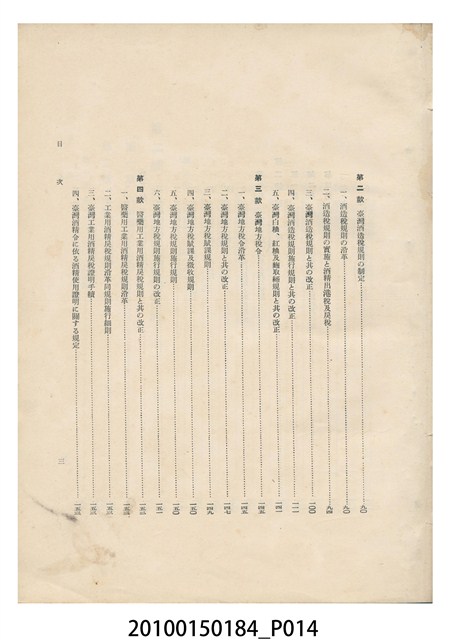 第二款 臺灣酒造稅規則の制定……九〇
一、酒造稅規則の沿革……九〇
二、酒造稅規則の實施と酒精出港稅及戾稅……九四
三、臺灣酒造稅規則と其の改正……一〇〇
四、臺灣酒造稅施行規則と其の改正……一二一
五、臺灣白糟、紅糟及麴取締規則と其の改正……一四一
第三款 臺灣地方稅令……一四五
一、臺灣地方稅令沿革……一四五
二、臺灣地方稅規則と其の改正……一四七
三、臺灣地方稅賦課規則……一四九
四、臺灣地方稅賦課及徵收規則……一五〇
五、臺灣地方稅規則施行規則……一五〇
六、臺灣地方稅規則施行規則の改正……一五一
第四款 醫藥用工業用酒精戾稅規則と其の改正……一五二
一、醫藥用工業用酒精戾稅規則沿革……一五二
二、工業用酒精戾稅規則沿革同規則施行細則……一五三
三、臺灣工業用酒精戾稅證明手續……一五三
四、臺灣酒精令に依る酒精使用證明に關する規定……一五三
目次
三
20100150184_P014